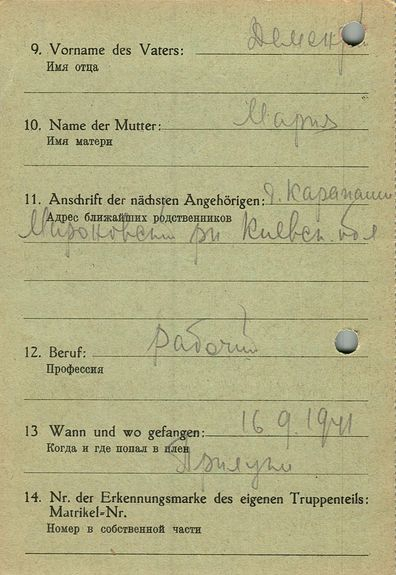 9. Vorname des Vaters:
Имя отца
10. Name der Mutter: Мария
Имя матери
11. Anschrift der nächsten Angehörigen: д. Карапаши
Адрес ближайших родственников
Мироновский рн Киевск. обл
12. Beruf: рабочий
Профессия
13 Wann und wo gefangen: 16.9.1941
Когда и где попал в плен
Прилуки
14. Nr. der Erkennungsmarke des eigenen Truppenteils:
Matrikel-Nr.
Номер в собственной части